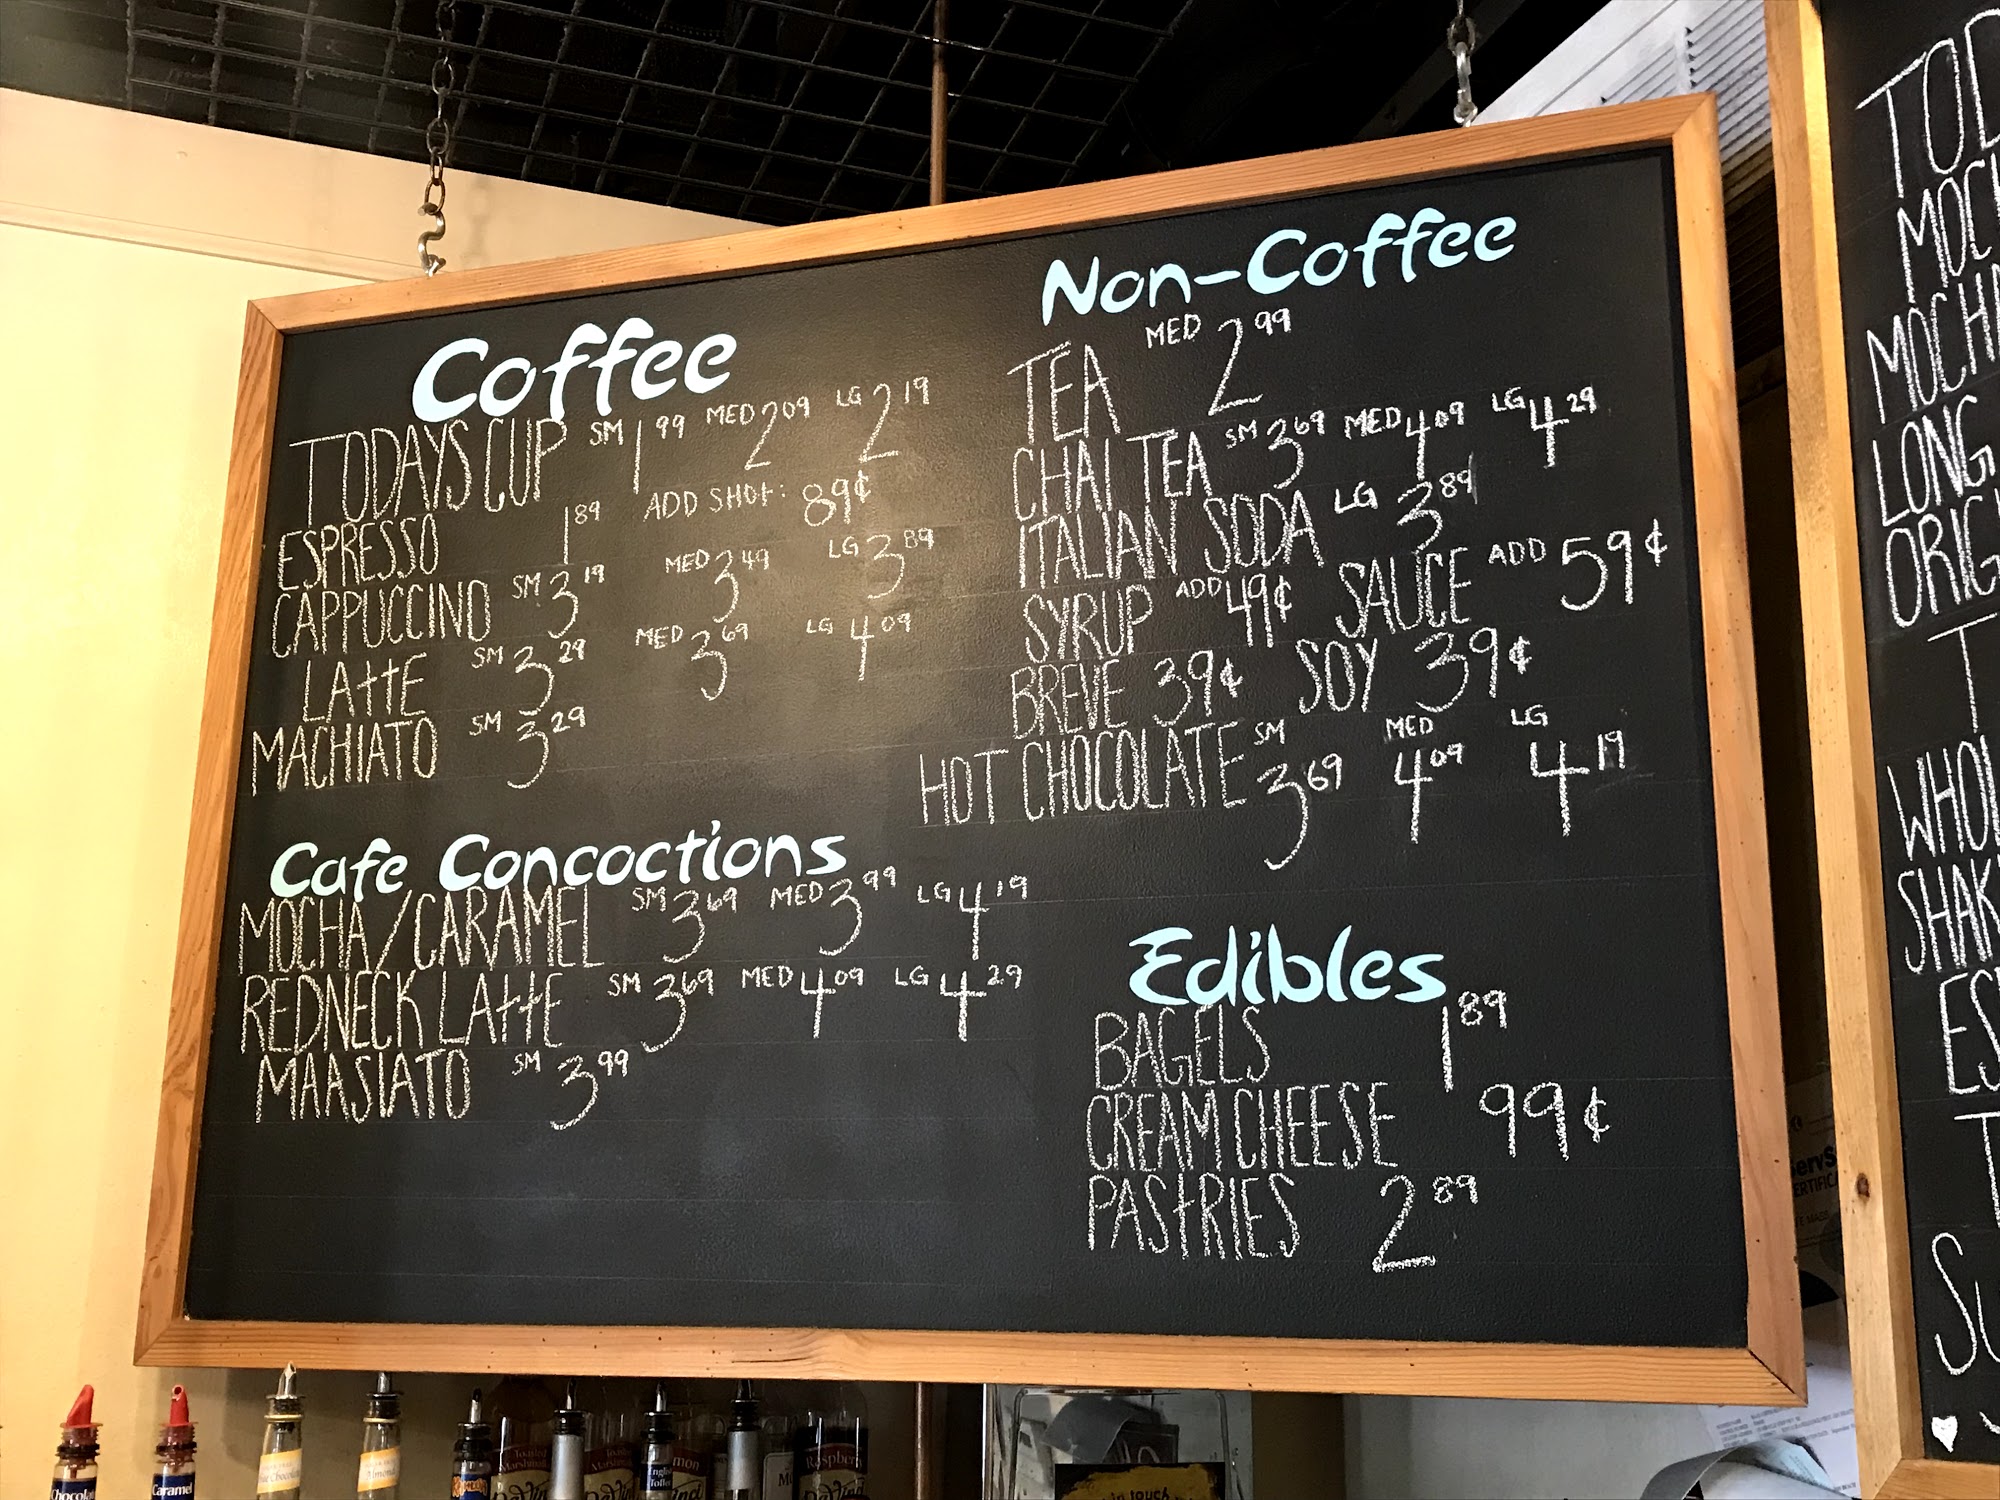 Coffee
TODAYS CUP SM 1 99 MED 2 09 LG 2 19
ESPRESSO 1 89 ADD SHOt: 89¢
CAPPUCCINO SM 3 19 MED 3 49 LG 3 89
LAttE SM 3 29 MED 3 69 LG 4 09
MACHIATO SM 3 29
Cafe Concoctions
MOCHA/CARAMEL SM 3 69 MED 3 99 LG 4 19
REDNECK LAttE SM 3 69 MED 4 09 LG 4 29
MAASIATO SM 3 99
Non-Coffee
TEA MED 2 99
CHAI TEA SM 3 69 MED 4 09 LG 4 29
ITALIAN SODA LG 3 89
SYRUP ADD 49¢ SAUCE ADD 59¢
BREVE 39¢ SOY 39¢
HOT CHOCOLATE SM 3 69 MED 4 09 LG 4 19
Edibles
BAGELS 1 89
CREAM CHEESE 99¢
PAStRIES 2 89
TOD
MOC
MOCH
LONG
ORIG
T
WHOL
SHAK
ES
Caramel
Almond
Toasted
Raspberry
English
Toffee
in touch